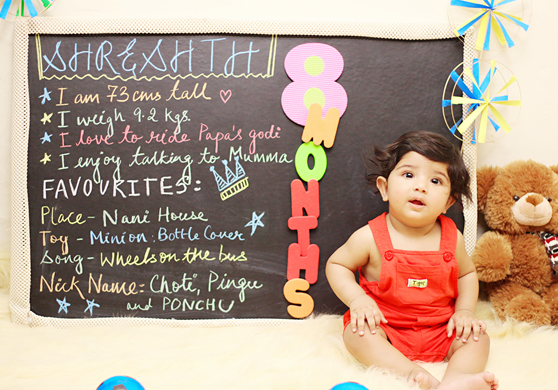 SHRESHTH
I am 73 cms tall
I weigh 9.2 kgs
I love to ride Papa's godi
I enjoy talking to Mumma
FAVOURITES:
Place - Nani House
Toy - Minion: Bottle Cover
Song - Wheels on the bus
Nick Name: Choté, Pingu
and PONCHU
8
MONTHS